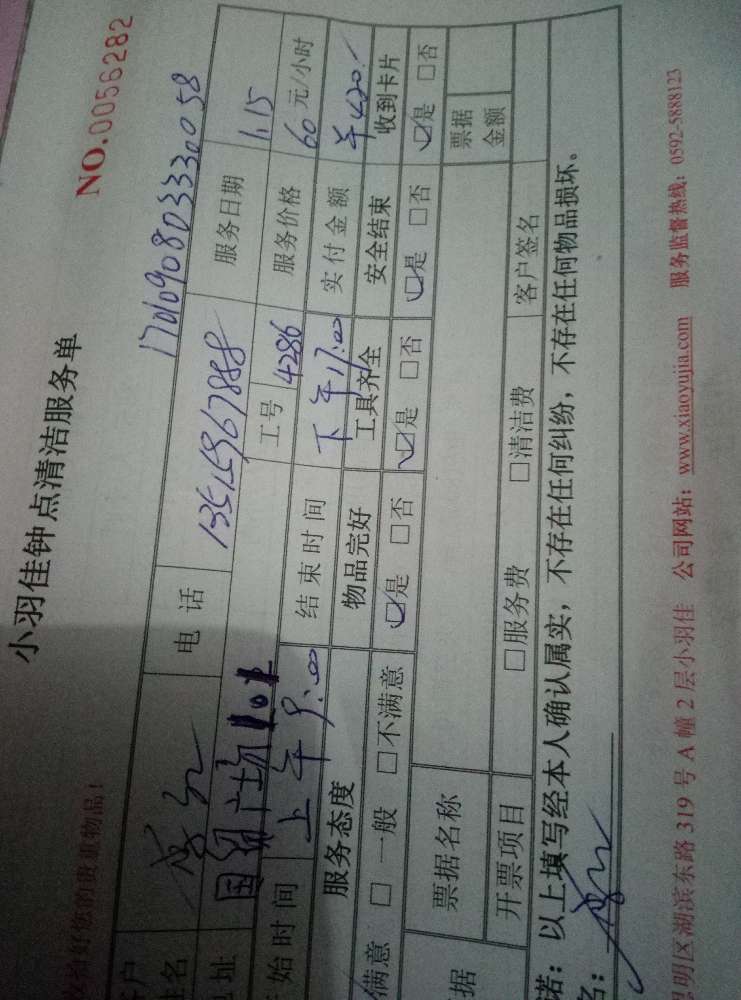 小羽佳钟点清洁服务单
NO.0056282
管好您的贵重物品！
17010908033330058
户 姓名 电话 13515967888 服务日期 1.15
地址 国贸广场 工号 4286 服务价格 60 元/小时
开始时间 上午9:00 结束时间 下午17:00 实付金额 ￥420.
服务态度 物品完好 工具齐全 安全结束 收到卡片
满意 □一般 □不满意 ☑是 □否 ☑是 □否 ☑是 □否 ☑是 □否
据 票据名称 票据金额
开票项目 □服务费 □清洁费 客户签名
诺：以上填写经本人确认属实，不存在任何纠纷，不存在任何物品损坏。
名：
明区湖滨东路 319 号 A 幢 2 层小羽佳 公司网站：www.xiaoyujia.com 服务监督热线：0592-5888123